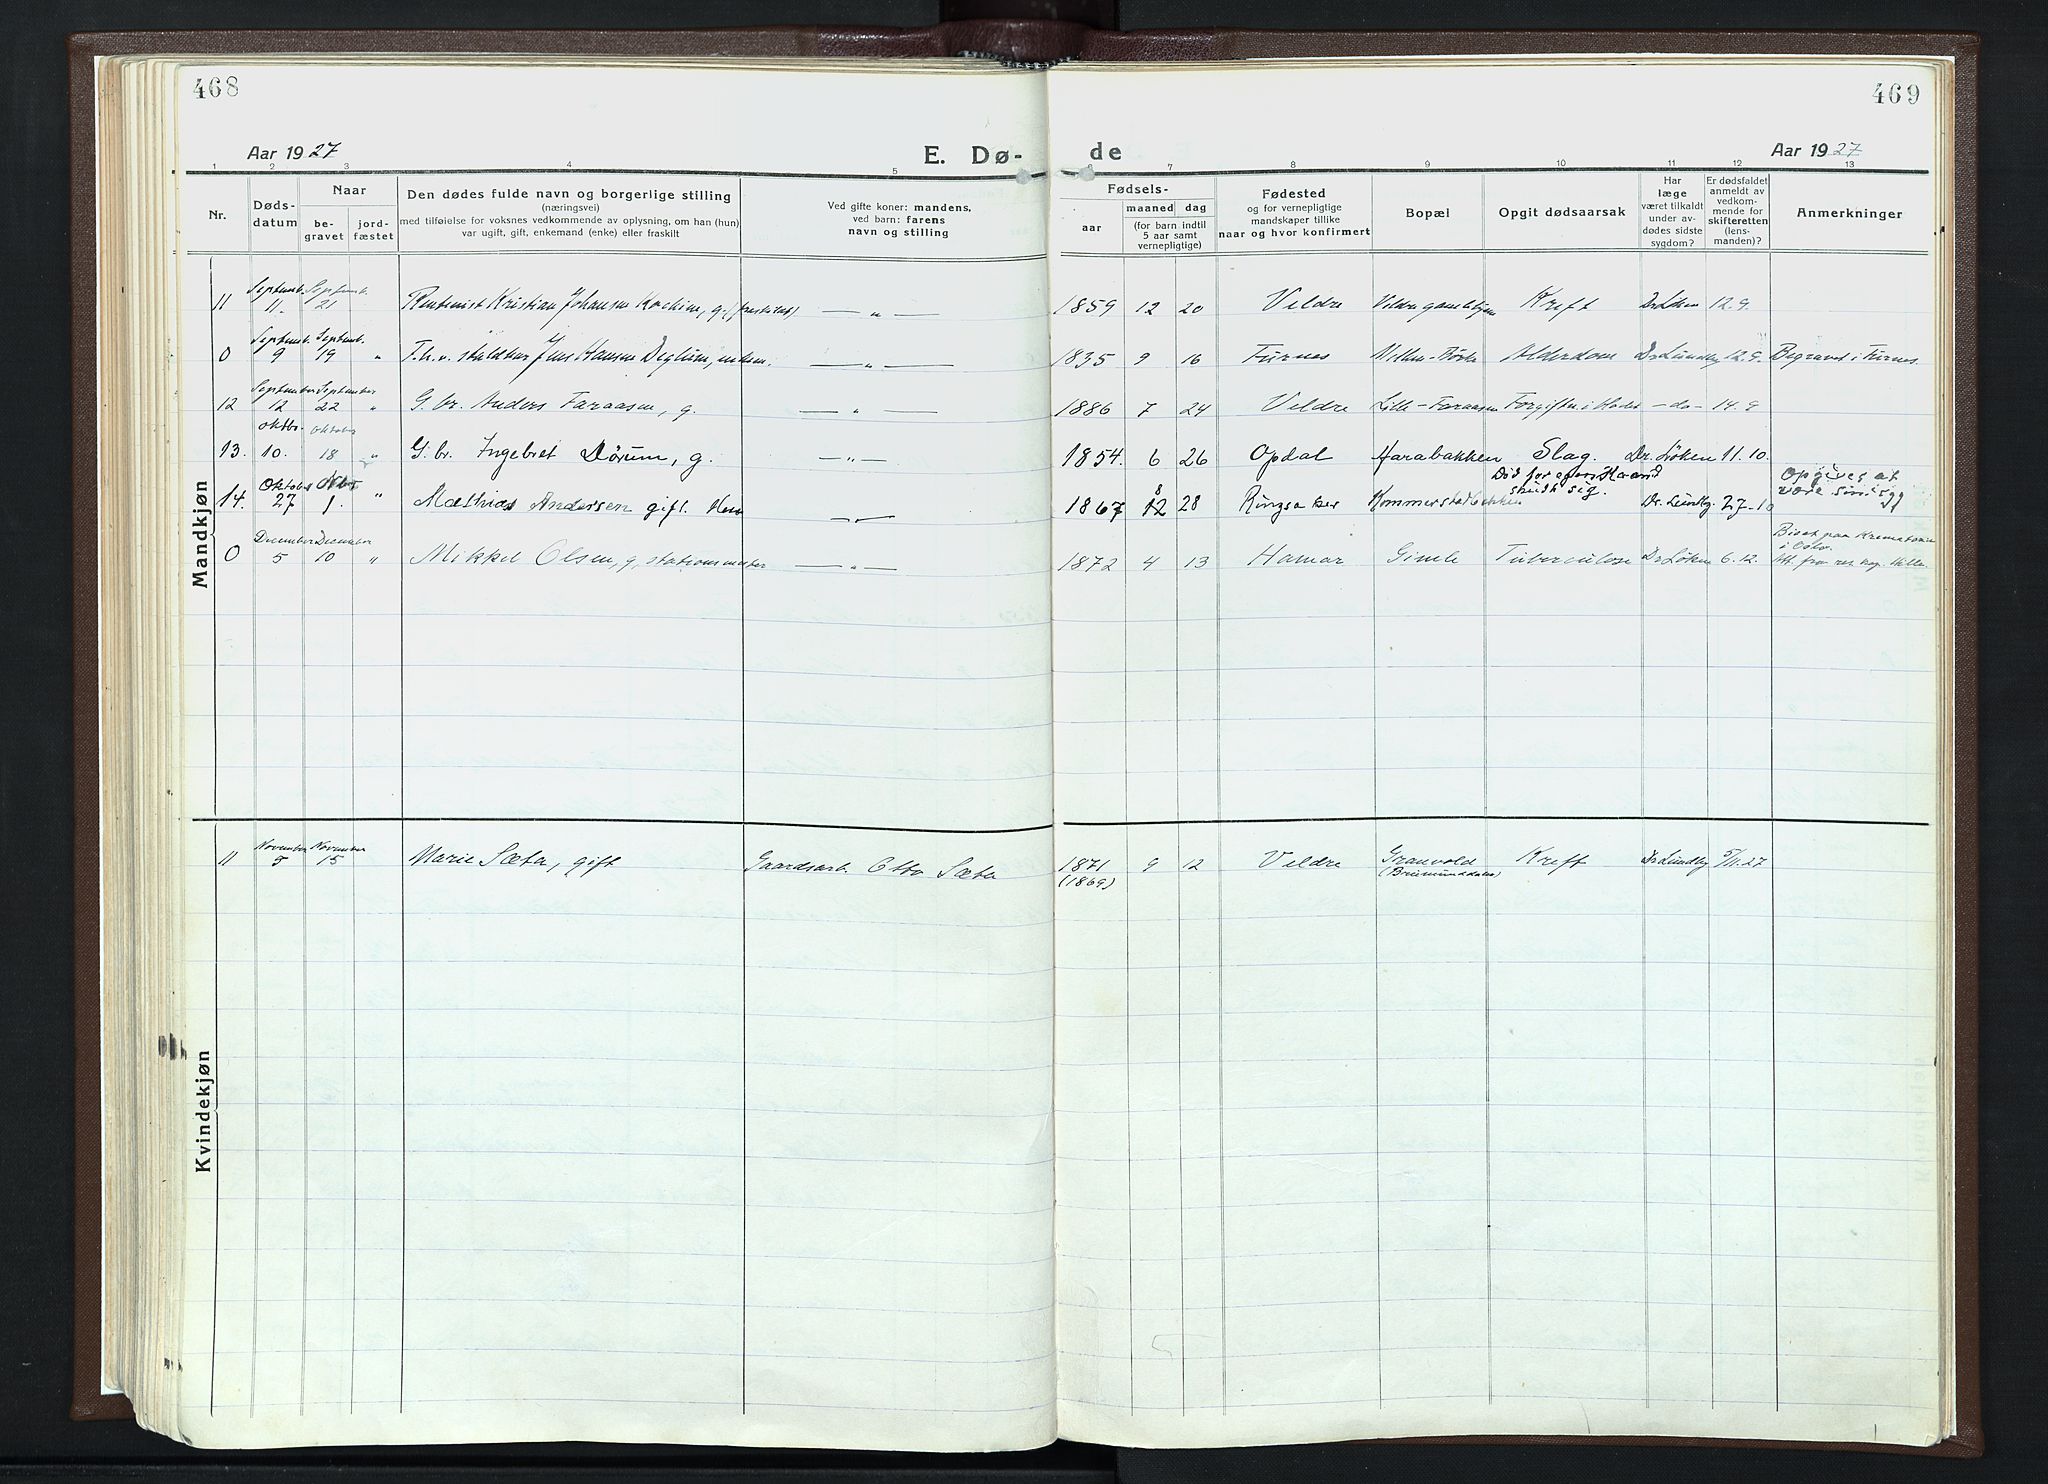 468
469
Aar 1927
E. Dø-
de
Aar 1927
1 2 3 4 5 6 7 8 9 10 11 12 13
Nr.
Døds-
datum
Naar
be-
gravet
jord-
fæstet
Den dødes fulde navn og borgerlige stilling
(næringsvei)
med tilføielse for voksnes vedkommende av oplysning, om han (hun)
var ugift, gift, enkemand (enke) eller fraskilt
Ved gifte koner: mandens,
ved barn: farens
navn og stilling
Fødsels-
aar
maaned
dag
(for barn indtil
5 aar samt
vernepligtige)
Fødested
og for vernepligtige
mandskaper tillike
naar og hvor konfirmert
Bopæl
Opgit dødsaarsak
Har
læge
været tilkaldt
under av-
dødes sidste
sygdom?
Er dødsfaldet
anmeldt av
vedkom-
mende for
skifteretten
(lens-
manden)?
Anmerkninger
Mandkjøn
Septemb. Septemb.
11 11. 21 Rentenist Kristian Johansen g. (fraskilt) — „ — 1859 12 20 Veldre Kreft Dr Løken 12.9.
Septemb. Septemb.
0 9 19 „ Jens Hansen Deglum, enkem. — „ — 1835 9 16 Furnes Alderdom Dr Lundby 12.9. Begravet i Furnes.
September September
12 12 22 „ G. br. Anders Faraasen, g. — „ — 1886 7 24 Veldre Lille-Faraasen Forgiftn. i blodet — do — 14.9
oktbr. oktober
13. 10. 18 „ G. br. Ingebret Dørum, g. — „ — 1854. 6 26 Opdal Harabakken Slag. Dr. Løken 11.10.
Oktober Nbr
14. 27 1. „ Mathias Andersen gift. 1867 8 12 28 Ringsaker Død for egen Haand
skudt sig. Dr. Lundby. 27-10 Opgives at
være sindssyg
December December
0 5 10 „ Mikkel Olsen, g, stationsmester — „ — 1872 4 13 Hamar Gimle Tuberculose Dr Løken 6.12. Biset paa Krematoriet
i Oslo.
Att. fra res. kap. Hille.
Kvindekjøn
November November
11 5 15 Marie Sæter, gift Gaardsarb. Otto Sæter 1871 9 12 Veldre Granvold Kreft Dr Lundby 5/11.27
(1869) (Brumunddalen)